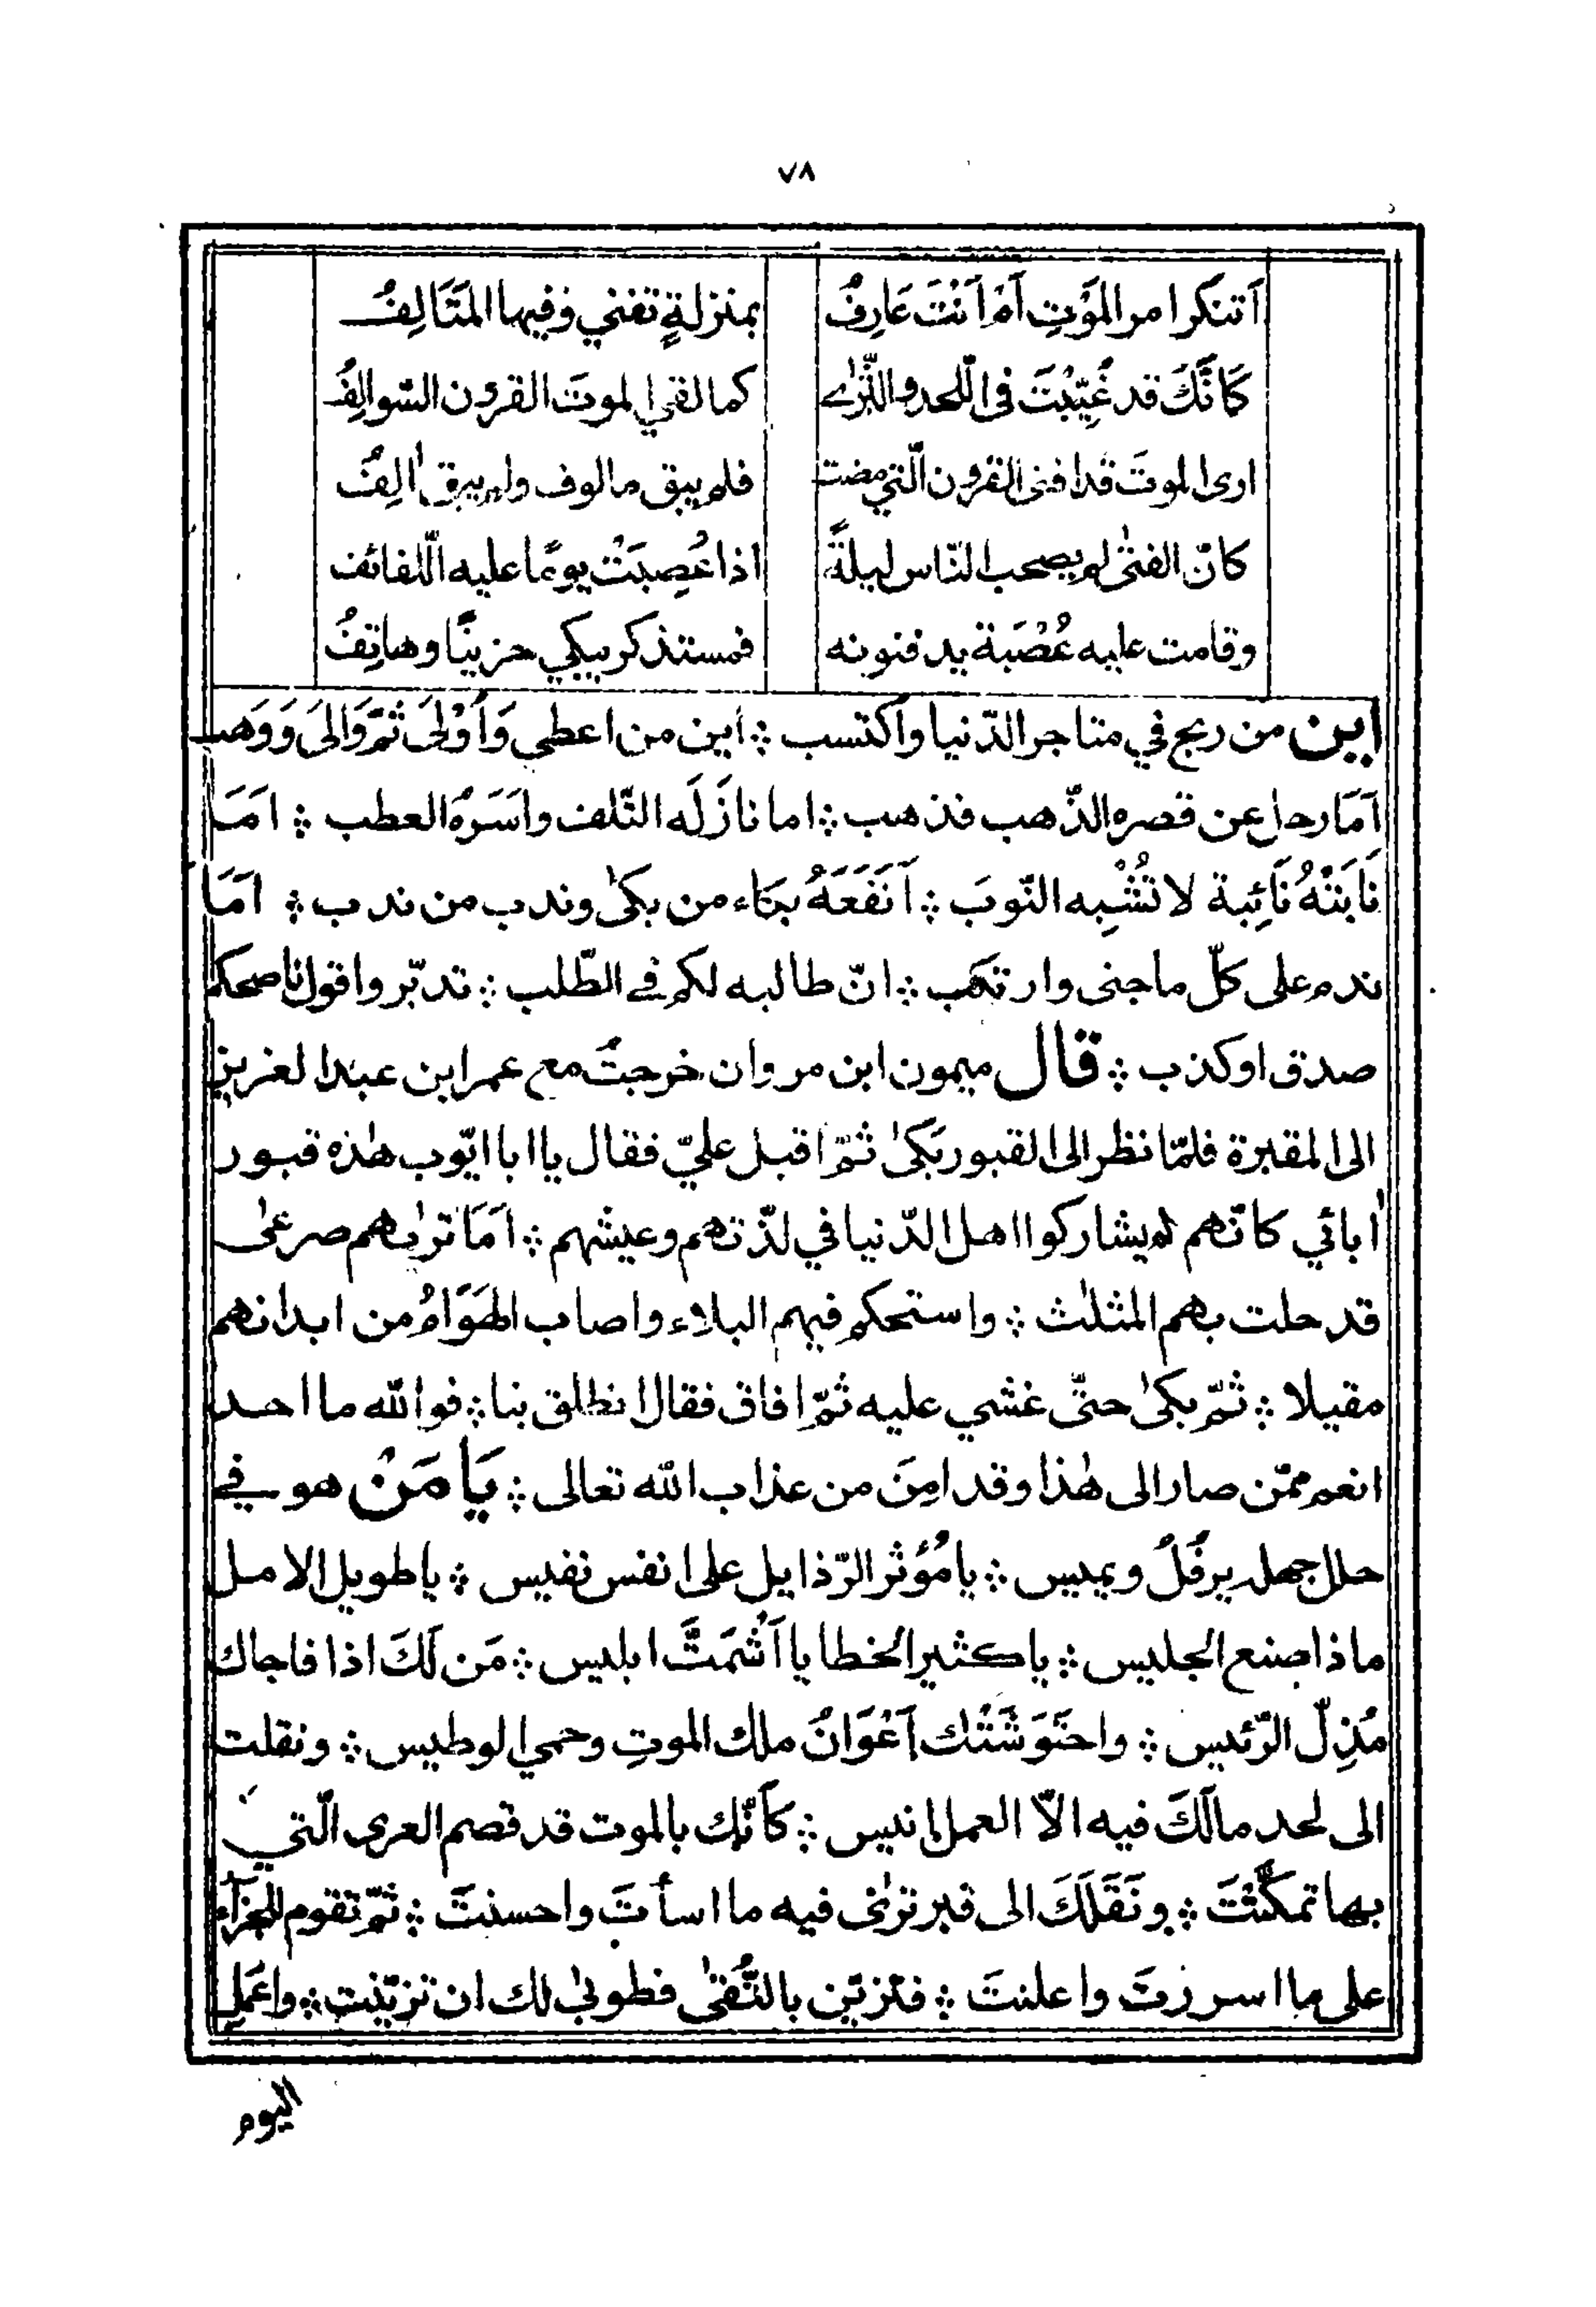 ٧٨
اَتنكر امر المَوْتِ اَمْ اَنْتَ عَارِفُ بمنزلةٍ تفني وفيها المَتَالِفُ
كَاَنَّكَ قد غُيِّبْتَ فى اللّحد والثّرٰے كما لقي الموتَ القرون السّوالِفُ
ارى الموتَ قد افنى القرون الّتي مضت فلم يبق مالوف ولم يبق اٰلِفُ
كانّ الفتٰى لم يصحب النّاس ليلةً اذا عُصِبَتْ يومًا عليه اللّفائف
وقامت عليه عُصْبة يدفنونه فمستذكر يبكي حزينًا وهاتِفُ
اين من ربح في متاجر الدّنيا واكتسب ؞ اين من اعطي وَاَوْلىَ ثُمَّ وَالىَ وَوَهب
اَمَا رحل عن قصره الذّهب فذهب ؞ اما نازَلَه التّلف واَسَرَهُ العطب ؞ اَمَا
نَابَتْهُ نَائِبة لا تُشْبِه النّوبَ ؞ اَنَفَعَهُ بكاء من بكىٰ وندب من ندب ؞ اَمَا
ندم على كلّ ما جنى وارتكب ؞ انّ طالبه لكم فے الطّلب ؞ تدبّروا قول ناصحكم
صدق او كذب ؞ قال ميمون ابن مروان خرجتُ مع عمر ابن عبد العزيز
الى المقبرة فلمّا نظر الى القبور بَكىٰ ثمّ اقبل عليّ فقال يا ابا ايّوب هٰذه قبور
اٰبائي كانّهم لم يشاركوا اهل الدّنيا في لذّتهم وعيشهم ؞ اَمَا ترٰىهم صرعىٰ
قد حلت بهم المثلٰث ؞ واستحكم فيهم البلاء واصاب الهَوَامُ من ابدانهم
مقيلا ؞ ثمّ بكىٰ حتّى غشي عليه ثمّ افاق فقال انطلق بنا ؞ فوالله ما احد
انعم ممّن صار الى هٰذا وقد امِنَ من عذاب الله تعالى ؞ يَا مَنْ هو فے
حلل جهله يرفُلُ ويميس ؞ يا مُؤثر الرّذايل على انفس نفيس ؞ يا طويل الامل
ماذا صنع الجليس ؞ يا كثير الخطايا اَشْمَتَّ ابليس ؞ مَن لَكَ اذا فاجاك
مُذِلّ الرّئيس ؞ واحتَوَشَتْك اَعْوَانُ ملك الموتِ وحمي الوطيس ؞ ونقلت
الى لحد مالَكَ فيه الاّ العمل انيس ؞ كاَنّك بالموت قد فصم العرى الّتي
بها تمكّنْتَ ؞ ونَقَلَكَ الى قبر ترٰى فيه ما اساْتَ واحسنتَ ؞ ثمّ تقوم للجزآء
على ما اسررتَ واعلنتَ ؞ فتزيّن بالتُّقىٰ فطوبىٰ لك ان تزيّنت ؞ واعمل
اليوم